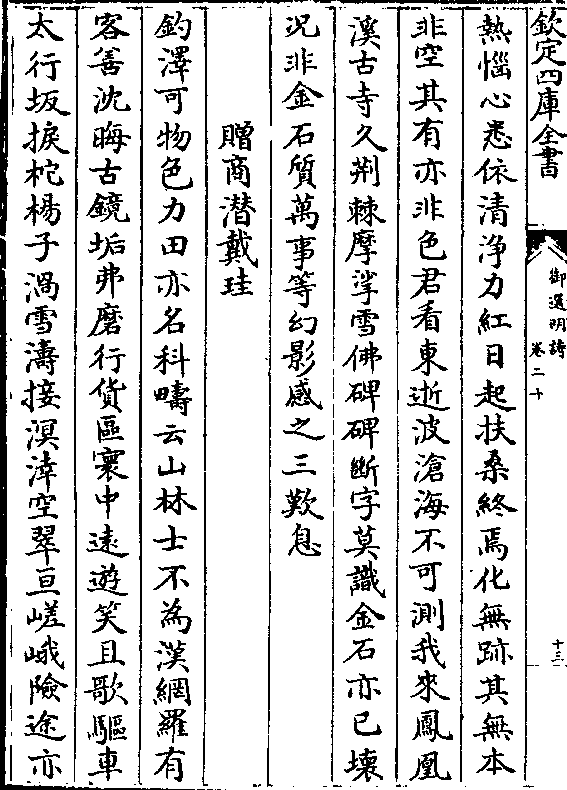 欽定四庫全書
御選明詩
卷二十
十三
熱惱心悉依清淨力紅日起扶桑終焉化無跡其無本
非空其有亦非色君看東逝波滄海不可測我來鳳凰
溪古寺久荆棘摩挲雪佛碑碑斷字莫識金石亦已壞
况非金石質萬事等幻影感之三歎息
贈商潜戴珪
釣澤可物色力田亦名科疇云山林士不為漢網羅有
客善沈晦古鏡垢弗磨行貨區寰中遠遊笑且歌驅車
太行坂捩柁楊子渦雪濤接溟涬空翠亘嵯峨險途亦